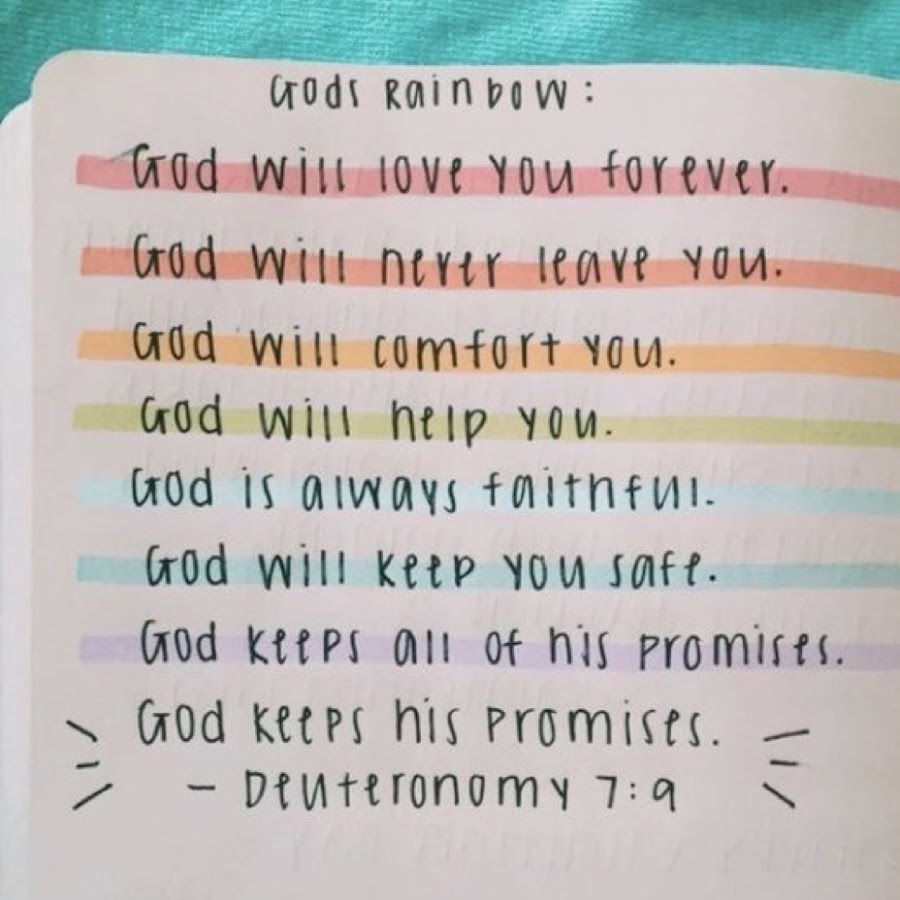 Gods Rainbow:
God will love you forever.
God will never leave you.
God will comfort you.
God will help you.
God is always faithful.
God will keep you safe.
God keeps all of his promises.
God keeps his promises.
- Deuteronomy 7:9